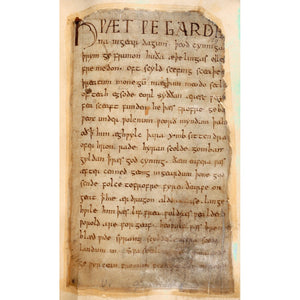 HǷÆT ǷE GARDE
na ingear dagum þeod cyninga
þrym ge frunon huða æþelingas elle
fremedon. oft scyld scefing sceaþe
þreatum monegum mægþum meodo setl
of teah egsode eorl syððan ærest
fea sceaft funden he þæs frofre geba
ƿeox under ƿolcnum ƿeorð myndum þah
oð þ him æghƿylc þara ymb sittendra
ofer hron rade hyran scolde gomban
gyldan þ ƿæs god cyning. ðæm eafera ƿæs
æfter cenned geong ingeardum þone god
sende folce tofrofre fyren ðearfe on
geat þ hie ær drugon aldor lange
hƿile him þæs lif frea ƿuldres ƿealdend
ƿorold are for geaf. beoƿulf ƿæs breme
blæd ƿide sprang scyldes eafera scede
landum in.